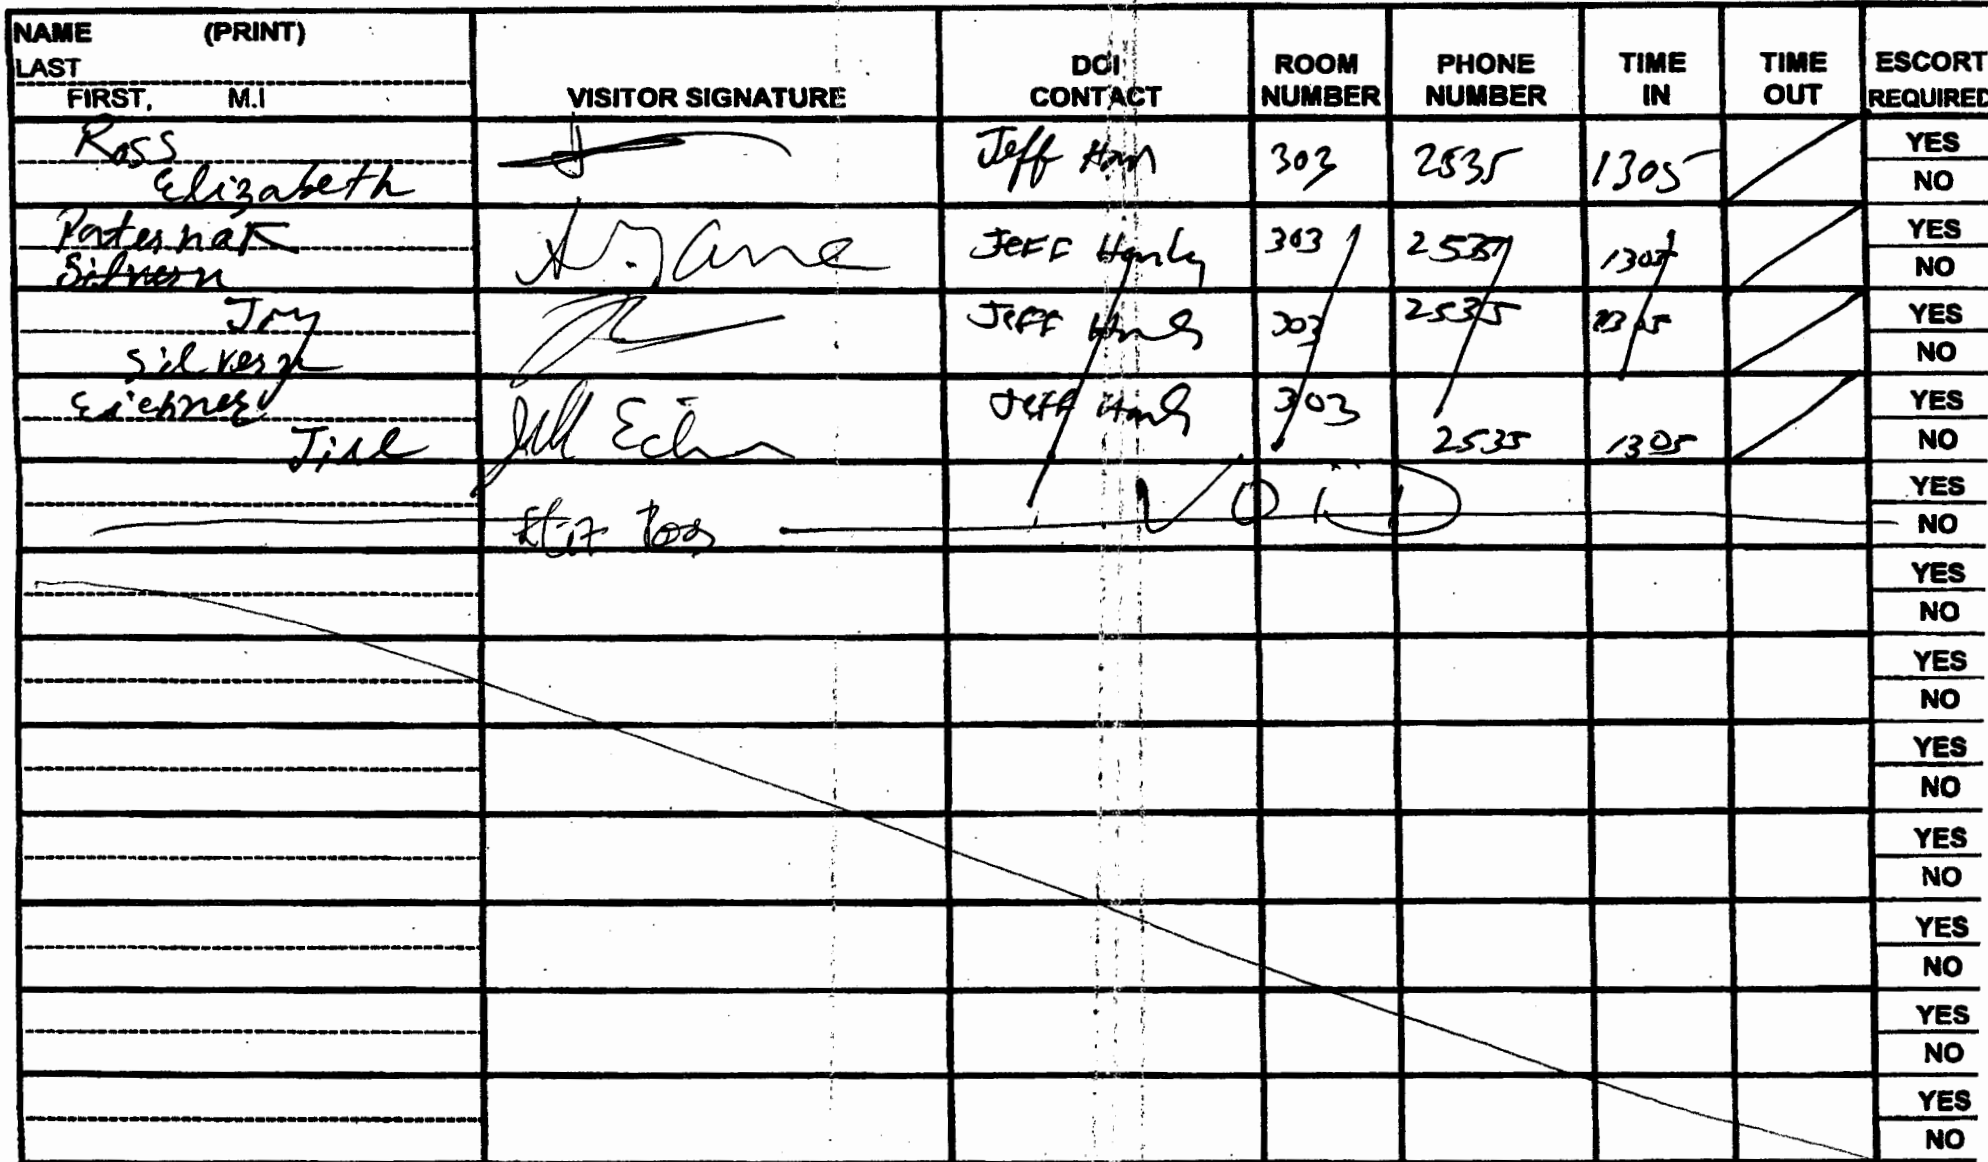 NAME (PRINT)
LAST
FIRST, M.I
VISITOR SIGNATURE
DOI CONTACT
ROOM NUMBER
PHONE NUMBER
TIME IN
TIME OUT
ESCORT REQUIRED
Ross
Elizabeth
Jeff
303
2535
1305
YES
NO
Paternak
Silvern
Jeff Hanly
303
2535
1305
YES
NO
Joy
Silvern
Jeff
303
2535
1305
YES
NO
Eichner
Jill
Jill
Jeff
303
2535
1305
YES
NO
VOID
YES
NO
YES
NO
YES
NO
YES
NO
YES
NO
YES
NO
YES
NO
YES
NO